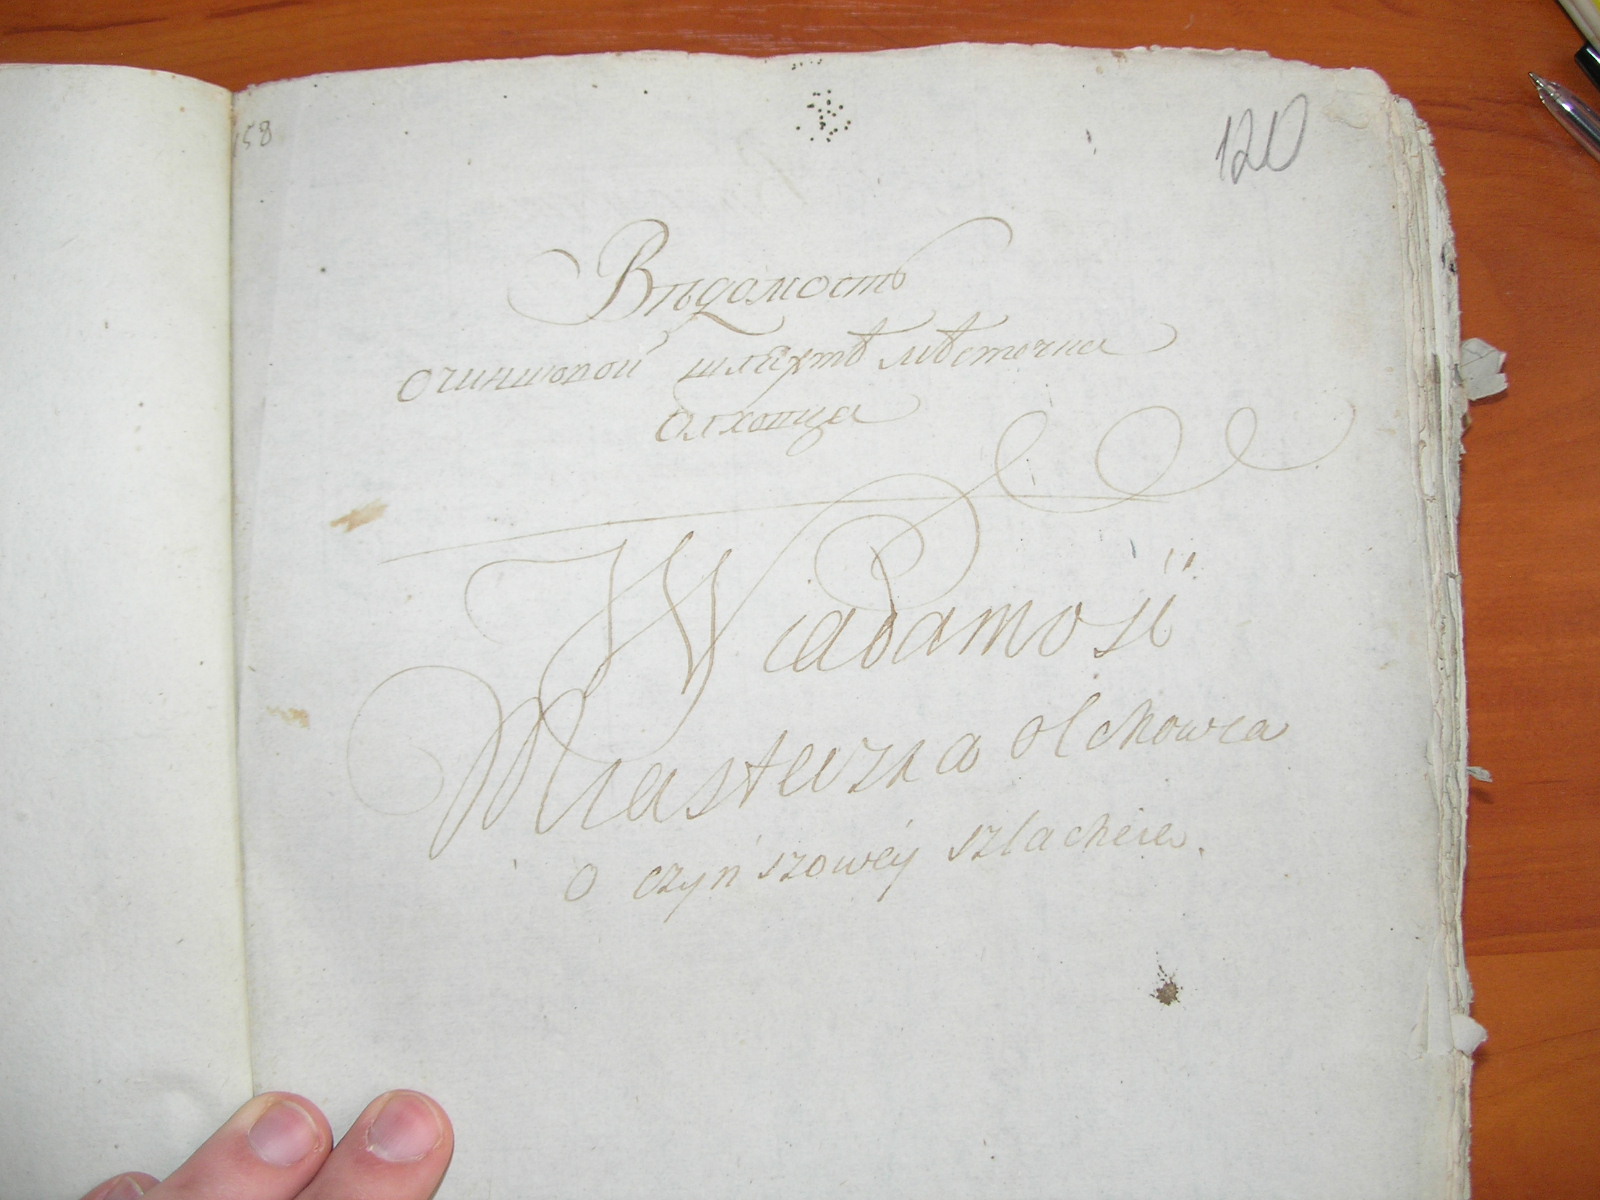 158
120
Вѣдомость
очиншовой шляхтѣ мѣсточка
Олховца
Wiadamosji
Miasteczka Olchowca
O czynszowéy szlachcie.